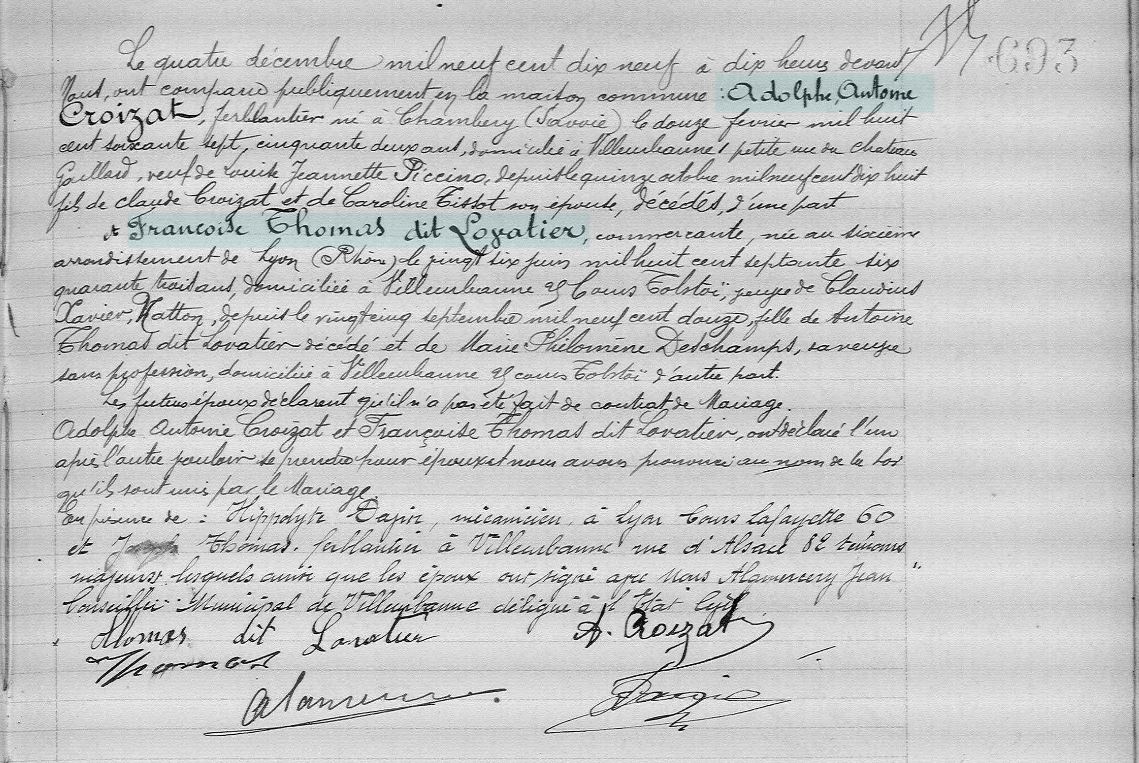 693
Le quatre décembre mil neuf cent dix neuf à dix heures devant
Nous, ont comparu publiquement en la maison commune : Adolphe, Antoine
Croizat, ferblantier né à Chambéry (Savoie) le douze février mil huit
cent soixante sept, cinquante deux ans, domicilié à Villeurbanne petite rue du chateau
Gaillard, veuf de Louise Jeannette Piccino, depuis le quinze octobre mil neuf cent dix huit
fils de Claude Croizat et de Caroline Tissot son épouse, décédés, d'une part
et Françoise Thomas dit Lovatier, commerçante, née au sixième
arrondissement de Lyon (Rhône) le vingt six juin mil huit cent septante six
quarante trois ans, domiciliée à Villeurbanne 95 Cours Tolstoï, veuve de Claudius
Xavier, Matton, depuis le vingt cinq septembre mil neuf cent douze, fille de Antoine
Thomas dit Lovatier décédé et de Marie Philomène Deschamps, sa veuve
sans profession, domiciliée à Villeurbanne 95 cours Tolstoï d'autre part.
Les futurs époux déclarent qu'il n'a pas été fait de contrat de Mariage.
Adolphe Antoine Croizat et Françoise Thomas dit Lovatier, ont déclaré l'un
après l'autre vouloir se prendre pour époux et nous avons prononcé au nom de la Loi
qu'ils sont unis par le Mariage.
En présence de : Hippolyte, mécanicien, à Lyon Cours Lafayette 60
et Joseph Thomas, ferblantier à Villeurbanne rue d'Alsace 82 témoins
majeurs, lesquels ainsi que les époux ont signé avec Nous Alamercery Jean
Conseiller Municipal de Villeurbanne délégué à l'Etat Civil
Thomas dit Lovatier A. Croizat
Thomas